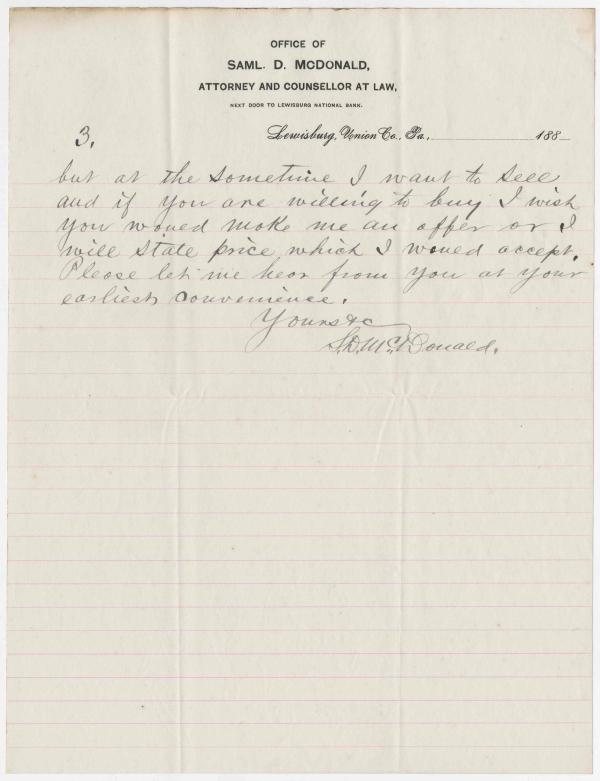 OFFICE OF
SAML. D. McDONALD,
ATTORNEY AND COUNSELLOR AT LAW,
NEXT DOOR TO LEWISBURG NATIONAL BANK.
3. Lewisburg, Union Co., Pa., 188
but at the sometime I want to sell
and if you are willing to buy I wish
you would make me an offer or I
will state price which I would accept.
Please let me hear from you at your
earliest convenience.
Yours &c
S. D. McDonald.